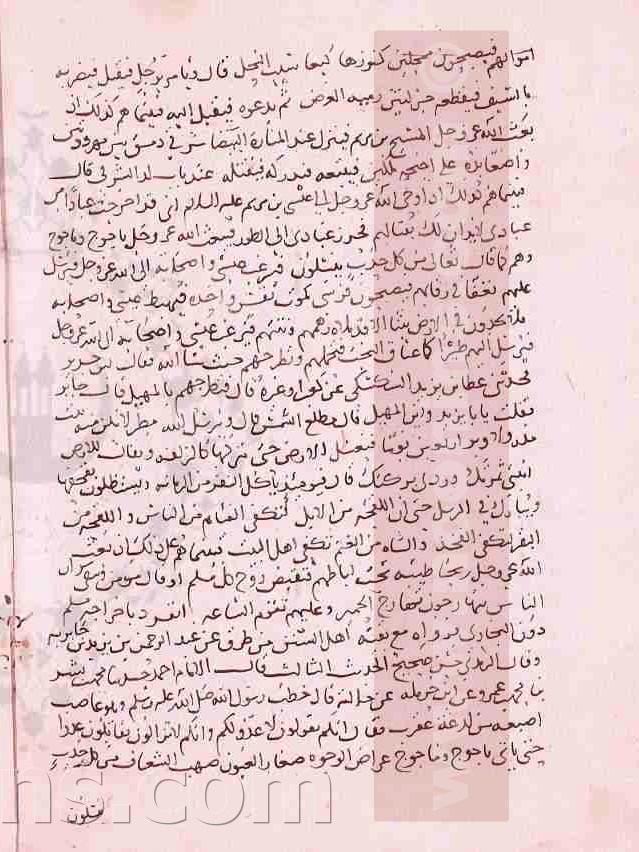 اموالهم فيصبحون ممحلين كنوزها كيعاسيب النحل قال ويامر برجل فيقتل فيضربه
بالسيف فيقطعه جزلتين رمية الغرض ثم يدعوه فيقبل اليه فبينما هم كذلك اذ
بعث الله عز وجل المسيح بن مريم فينزل عند المنارة البيضا شرقي دمشق بين مهرودتين
واضعا يده على اجنحة ملكين فيتبعه فيدركه فيقتله عند باب لد الشرقي قال
فبينما هم كذلك اذ اوحى الله عز وجل الى عيسى بن مريم عليه السلام اني قد اخرجت عبادا من
عبادي لا يدان لك بقتالهم فحرز عبادي الى الطور فيبعث الله عز وجل ياجوج وماجوج
وهم كما قال تعالى من كل حدب ينسلون فيرغب عيسى واصحابه الى الله عز وجل فيرسل
عليهم نغفا في رقابهم فيصبحون فرسى كموت نفس واحدة فيهبط عيسى واصحابه
فلا يجدون في الارض بيتا الا قد ملاه زهمهم ونتنهم فيرغب عيسى واصحابه الى الله عز وجل
فيرسل اليهم طيرا كاعناق البخت فتحملهم وتطرحهم حيث شا الله فقال بن جابر
فحدثني عطا بن يزيد السكسكي عن كعب او غيره قال فتطرحهم بالمهبل قال جابر
فقلت يابا يزيد واين المهبل قال مطلع الشمس قال ويرسل الله مطرا لا يكن منه بيت
مدر ولا وبر اربعين يوما فيغسل الارض حتى يتركها كالزلفة ويقال للارض
انبتي ثمرتك وردي بركتك قال فيومئذ ياكل النفر من الرمانة ويستظلون بقحفها
ويبارك في الرسل حتى ان اللقحة من الابل لتكفي الفئام من الناس واللقحة من
البقر لتكفي الفخذ والشاه من الغنم تكفي اهل البيت فبينما هم على ذلك اذ بعث
الله عز وجل ريحا طيبة تحت اباطهم فتقبض روح كل مسلم او قال مومن ويبقى شرار
الناس يتهارجون تهارج الحمير وعليهم تقوم الساعة انفرد باخراجه مسلم
دون البخاري ورواه مع بقية اهل السنن من طرق عن عبد الرحمن بن يزيد بن جابر به
وقال الترمذي حسن صحيح الحديث الثالث قال الامام احمد حدثنا محمد بن بشر
بن محمد بن عمرو عن ابن حرملة عن خالته قال خطب رسول الله صلى الله عليه وسلم وهو عاصب
اصبعه من لدغة عقرب فقال انكم تقولون لا عدو لكم وانكم لا تزالون تقاتلون عدوا
حتى ياتي ياجوج وماجوج عراض الوجوه صغار العيون صهب الشعاف من كل حدب
ينسلون
ns.com